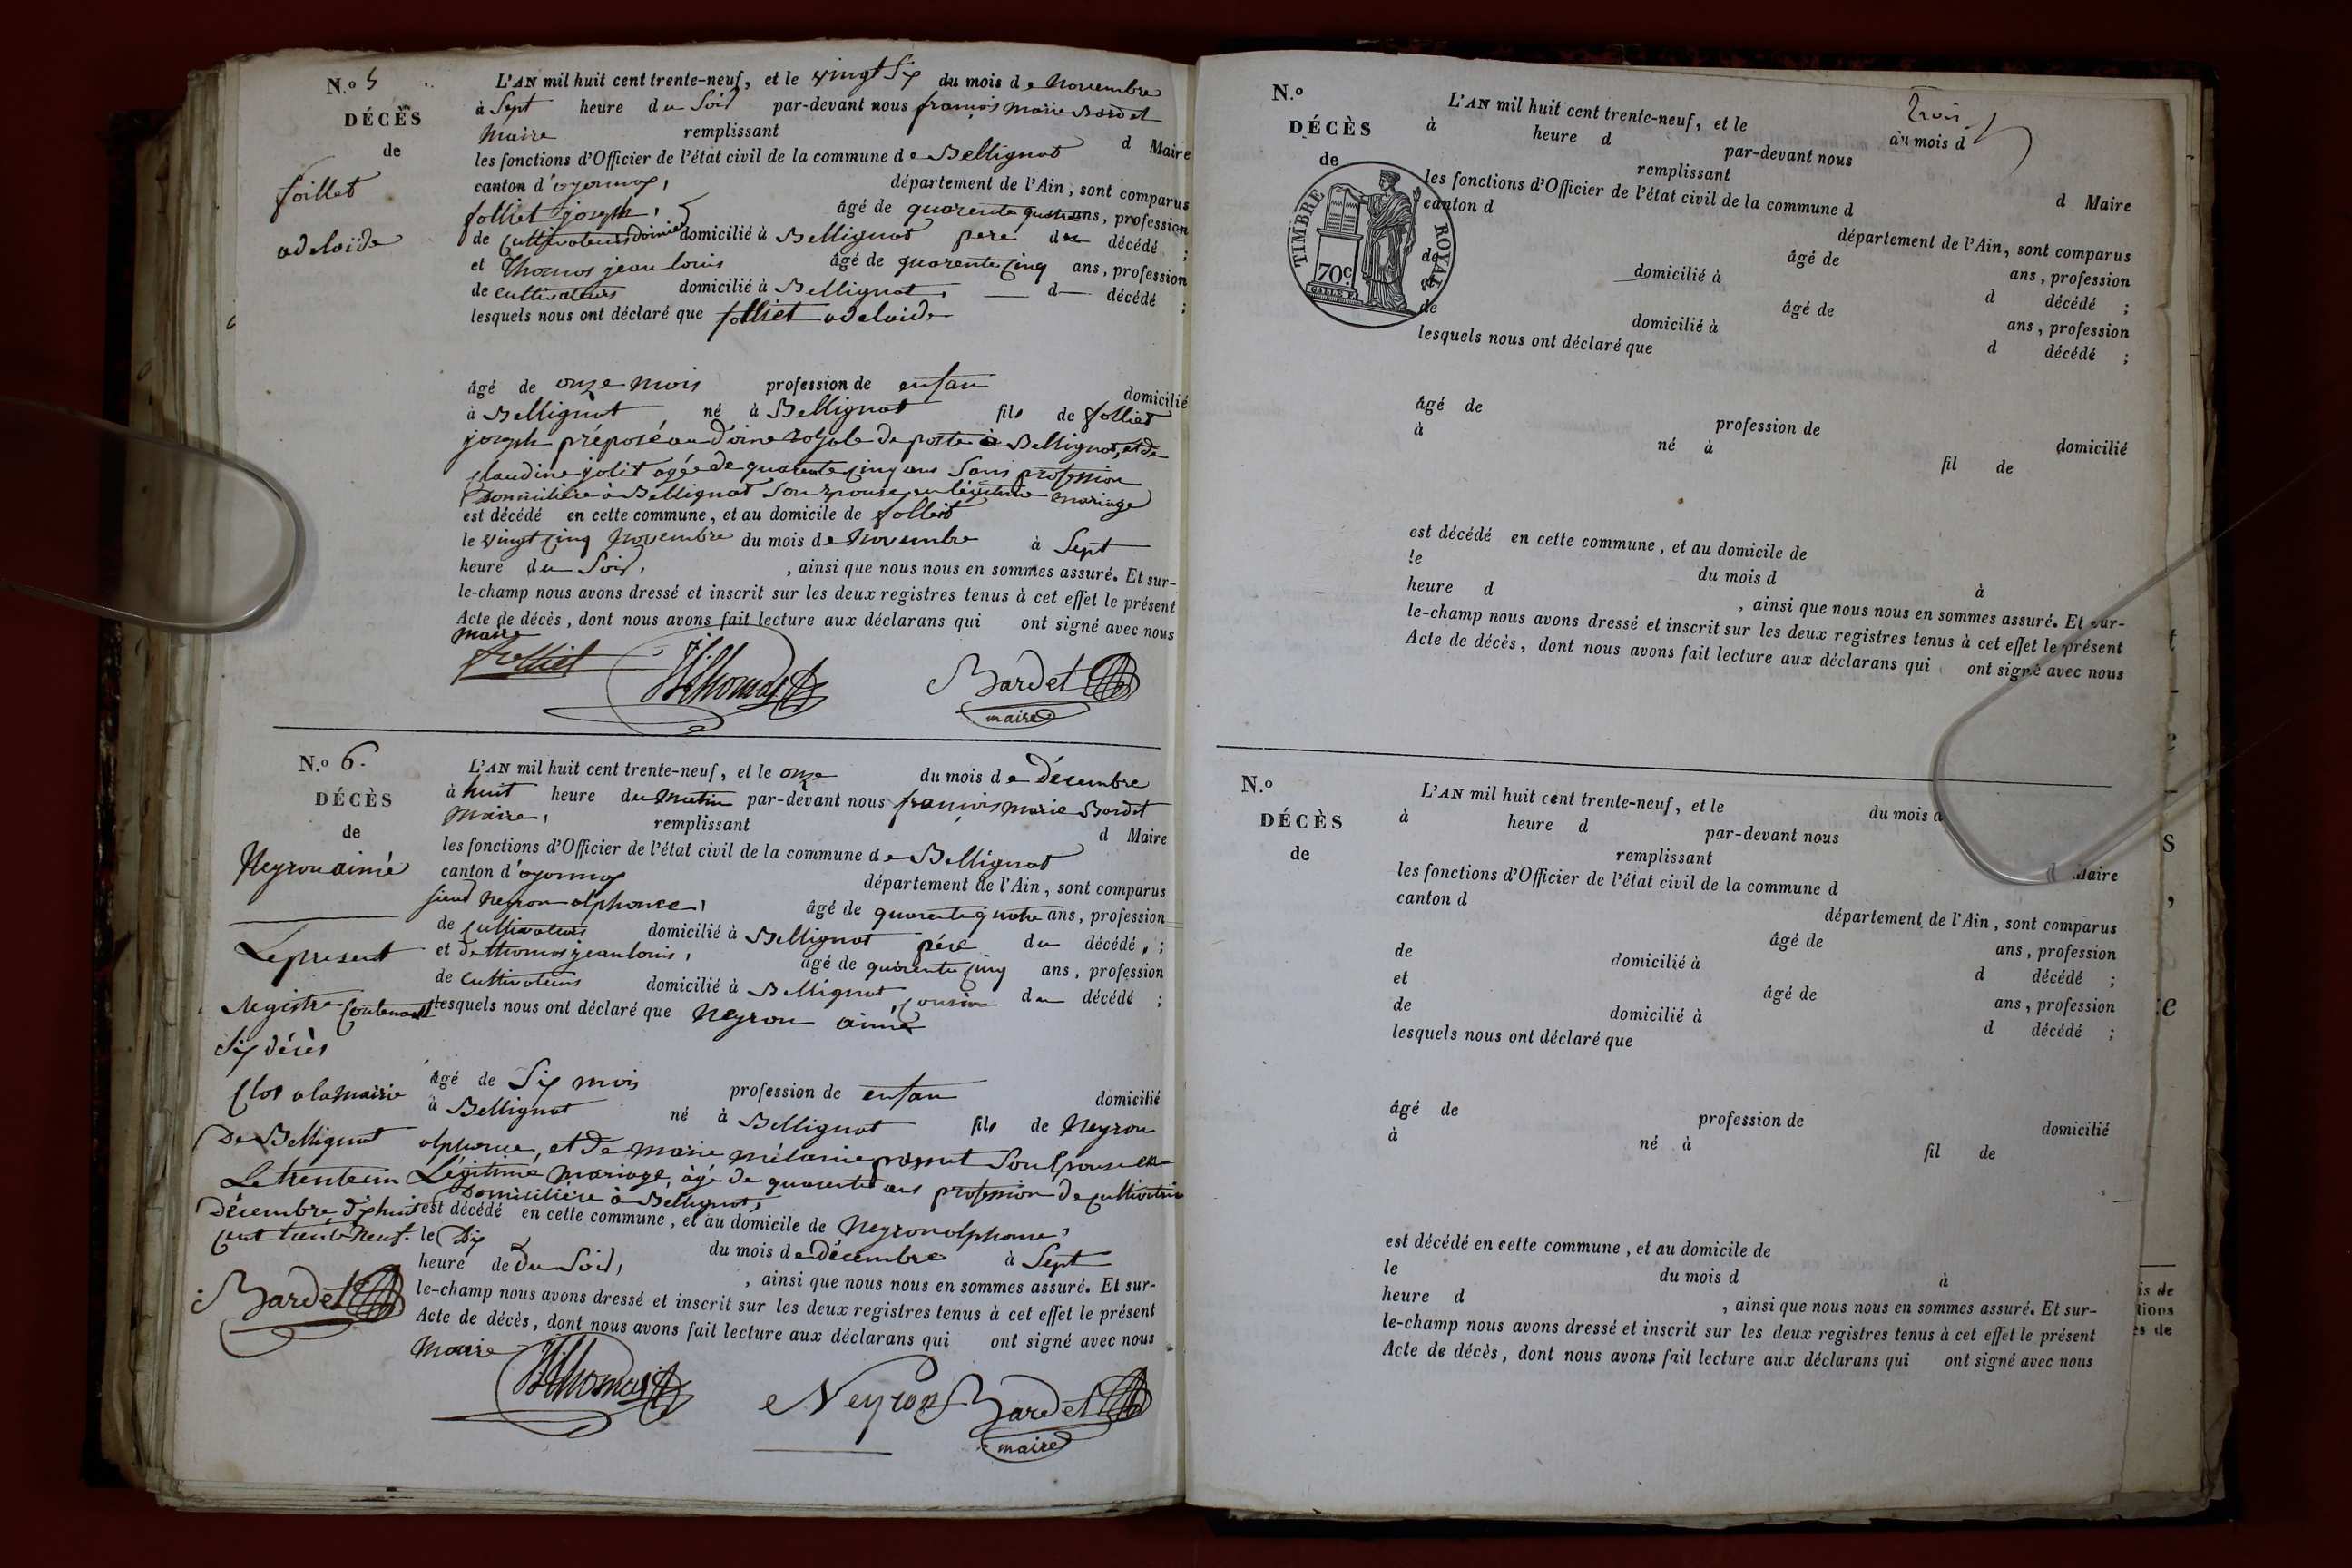 N.o 5
DÉCÈS
de
foillet
adelaide
L'AN mil huit cent trente-neuf, et le vingt Six du mois de Novembre
à Sept heure du Soir par-devant nous françois Marie Bardet
Maire remplissant d Maire
les fonctions d'Officier de l'état civil de la commune de Bellignat
canton d'oyonnax, département de l'Ain, sont comparus
folliet joseph, âgé de quarente quatre ans, profession
de domicilié à Bellignat pere du décédé ;
et Thomas jean louis âgé de quarente cinq ans, profession
de cultivateurs domicilié à Bellignat, d décédé ;
lesquels nous ont déclaré que folliet adelaide
âgé de onze mois profession de enfan domicilié
à Bellignat né à Bellignat fils de folliet
joseph préposé au de poste à Bellignat, et de
claudine jolit agée de quarente cinq ans Sans profession
Domiciliére à Bellignat Son Epouse en légitime mariage
est décédé en cette commune, et au domicile de folliet
le vingt cinq Novembre du mois de Novembre à Sept
heure du Soir, , ainsi que nous nous en sommes assuré. Et sur-
le-champ nous avons dressé et inscrit sur les deux registres tenus à cet effet le présent
Acte de décès, dont nous avons fait lecture aux déclarans qui ont signé avec nous
maire
folliet Thomas Bardet
maire
N.o 6.
DÉCÈS
de
Neyron aimé
Le present
Registre Contenant
Six décès
Clos a la mairie
De Bellignat
Le trente un
Décembre Dix huit
cent trente Neuf.
Bardet
L'AN mil huit cent trente-neuf, et le onze du mois de Décembre
à huit heure du Matin par-devant nous françois Marie Bardet
Maire, remplissant d Maire
les fonctions d'Officier de l'état civil de la commune de Bellignat
canton d'oyonnax département de l'Ain, sont comparus
sieur Neyron alphonce, âgé de quarente quatre ans, profession
de cultivateurs domicilié à Bellignat pére du décédé, ;
et de thomas jean louis, âgé de quarente cinq ans, profession
de cultivateurs domicilié à Bellignat, cousin du décédé ;
lesquels nous ont déclaré que Neyron aimé
âgé de Six mois profession de enfan domicilié
à Bellignat né à Bellignat fils de Neyron
alphonce, et de marie mélanie Son Epouse en
Légitime mariage, agé de quarente ans profession de cultivatrice
Domiciliére à Bellignat,
est décédé en cette commune, et au domicile de Neyron alphonce,
le Dix du mois de Décembre à Sept
heure de Du Soir, , ainsi que nous nous en sommes assuré. Et sur-
le-champ nous avons dressé et inscrit sur les deux registres tenus à cet effet le présent
Acte de décès, dont nous avons fait lecture aux déclarans qui ont signé avec nous
Maire
Thomas Neyron Bardet
maire
Trois
N.o
DÉCÈS
de
TIMBRE ROYAL
70c.
L'AN mil huit cent trente-neuf, et le du mois d
à heure d par-devant nous
remplissant d Maire
les fonctions d'Officier de l'état civil de la commune d
canton d département de l'Ain, sont comparus
âgé de ans, profession
de domicilié à d décédé ;
et âgé de ans, profession
de domicilié à d décédé ;
lesquels nous ont déclaré que
âgé de profession de domicilié
à né à fil de
est décédé en cette commune, et au domicile de
le du mois d à
heure d , ainsi que nous nous en sommes assuré. Et sur-
le-champ nous avons dressé et inscrit sur les deux registres tenus à cet effet le présent
Acte de décès, dont nous avons fait lecture aux déclarans qui ont signé avec nous
N.o
DÉCÈS
de
L'AN mil huit cent trente-neuf, et le du mois d
à heure d par-devant nous
remplissant d Maire
les fonctions d'Officier de l'état civil de la commune d
canton d département de l'Ain, sont comparus
âgé de ans, profession
de domicilié à d décédé ;
et âgé de ans, profession
de domicilié à d décédé ;
lesquels nous ont déclaré que
âgé de profession de domicilié
à né à fil de
est décédé en cette commune, et au domicile de
le du mois d à
heure d , ainsi que nous nous en sommes assuré. Et sur-
le-champ nous avons dressé et inscrit sur les deux registres tenus à cet effet le présent
Acte de décès, dont nous avons fait lecture aux déclarans qui ont signé avec nous